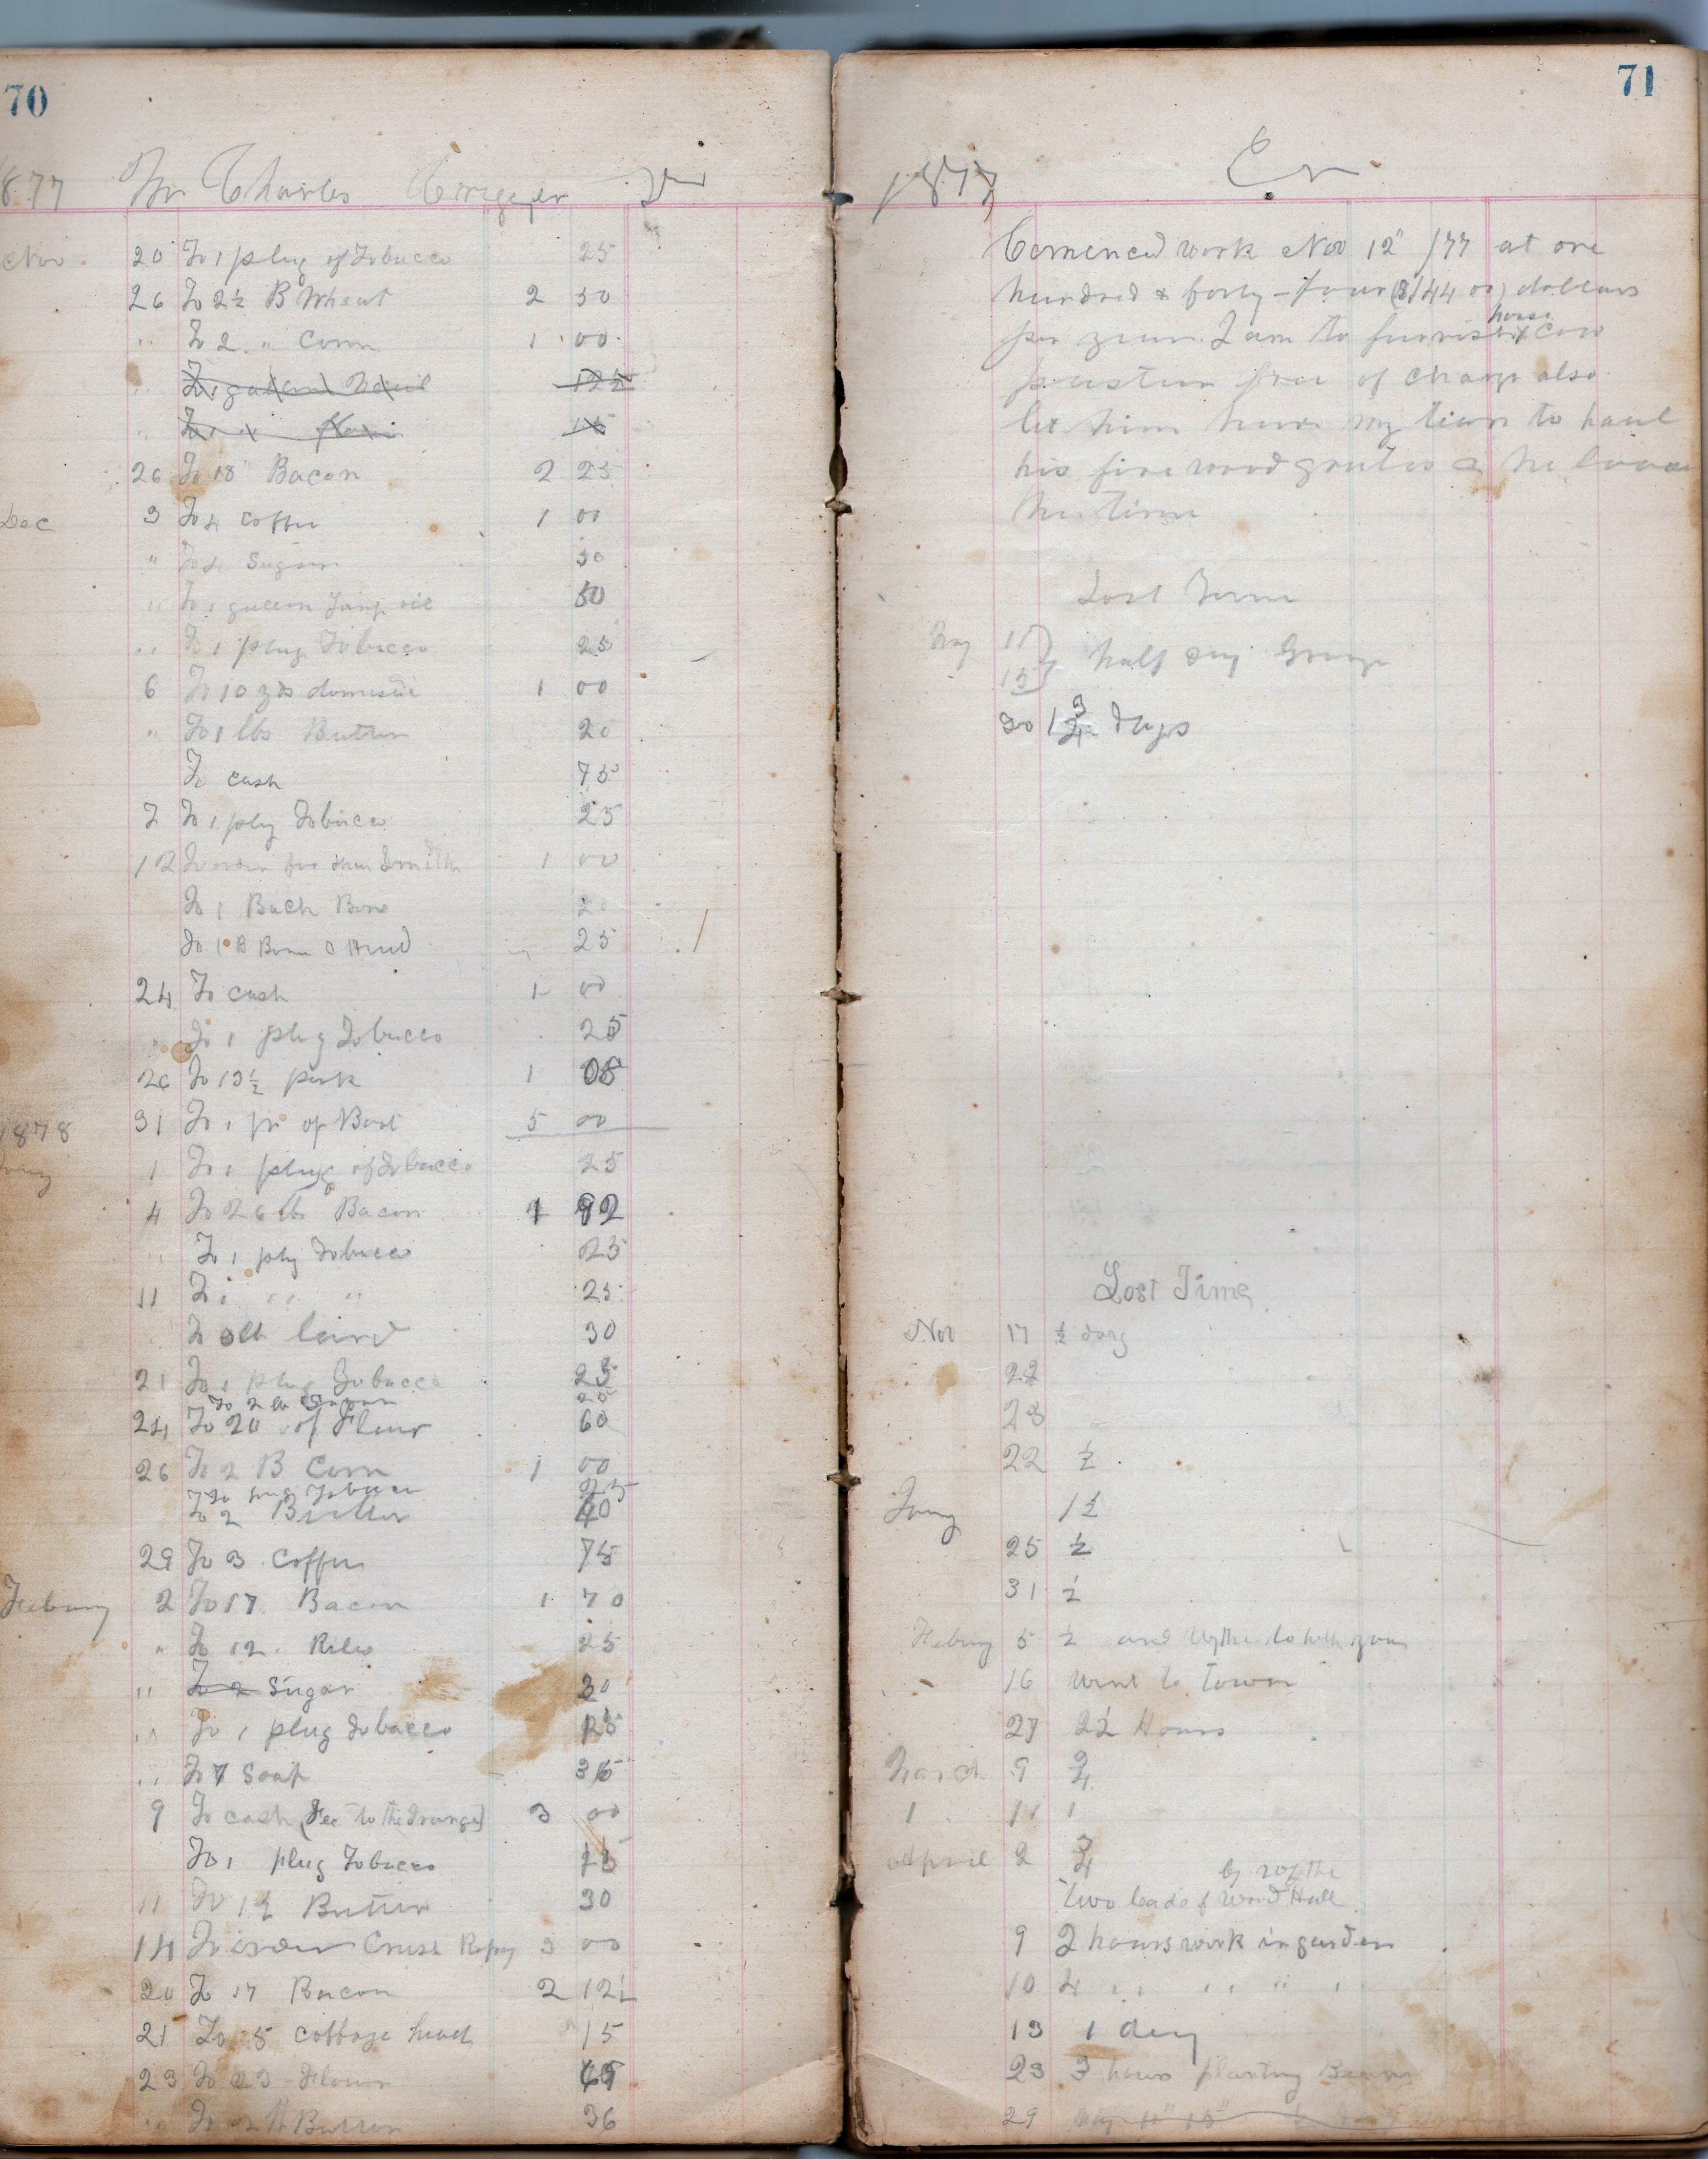 70
1877 Mr Charles Dr
Nov 20 To 1 plug of Tobacco 25
26 To 2½ B Wheat 2 50
" To 2 " Corn 1 00
26 To 18 Bacon 2 25
Dec 3 To 4 Coffee 1 00
" To 4 Sugar 50
" To 1 galon Lamp oil 50
" To 1 plug Tobacco 25
6 To 10 yds domestic 1 00
" To 1 lbs Butter 20
To cash 75
7 To 1 plug Tobacco 25
12 To order 1 00
To 1 Back Bone 20
To 1 B Bone & Head 25
24 To cash 1 00
" To 1 plug Tobacco 25
26 To 13½ pork 1 08
31 To 1 pr of Boot 5 00
1878
Jany 1 To 1 plug of Tobacco 25
4 To 26 lb Bacon 1 92
" To 1 plug Tobacco 25
11 To 1 " " 25
To 3 lb lard 30
21 To 1 plug Tobacco 25
To 2 lb Sugar 25
24 To 20 of Flour 60
26 To 2 B Corn 1 00
To plug Tobacco 25
To 2 Butter 40
29 To 3 Coffee 75
Febury 2 To 17 Bacon 1 70
" To 12 Ribs 25
" To 2 Sugar 30
" To 1 plug Tobacco 15
" To 7 Soap 35
9 To cash (Fee to the Grange) 3 00
To 1 plug Tobacco 15
11 To 1½ Butter 30
14 To order 3 00
20 To 17 Bacon 2 12½
21 To 5 cabbage head 15
23 To 23 Flour
" To 2 Butter 36
71
1877 Cr
Comenced work Nov 12" /77 at one
hundred & forty-four ($144 00) dollars
per year. I am to furnish house cow
pasture free of charge also
let him have my team to haul
his fire wood he
the time
Lost Time
May 11
15 half day Grange
30 1¾ days
Lost Time
Nov 17 ½ day
22
23 "
22 ½
Jany 1½
25 ½
31 ½
Febury 5 ½ and
16 went to town
27 2½ Hours
March 9 ¾
1 11 1
April 2 ¾
by
two loads of wood Hall
9 2 hours work in garden
10 4 " " " "
13 1 day
23 3 hours planting Beans
29 May 11" 15" ½